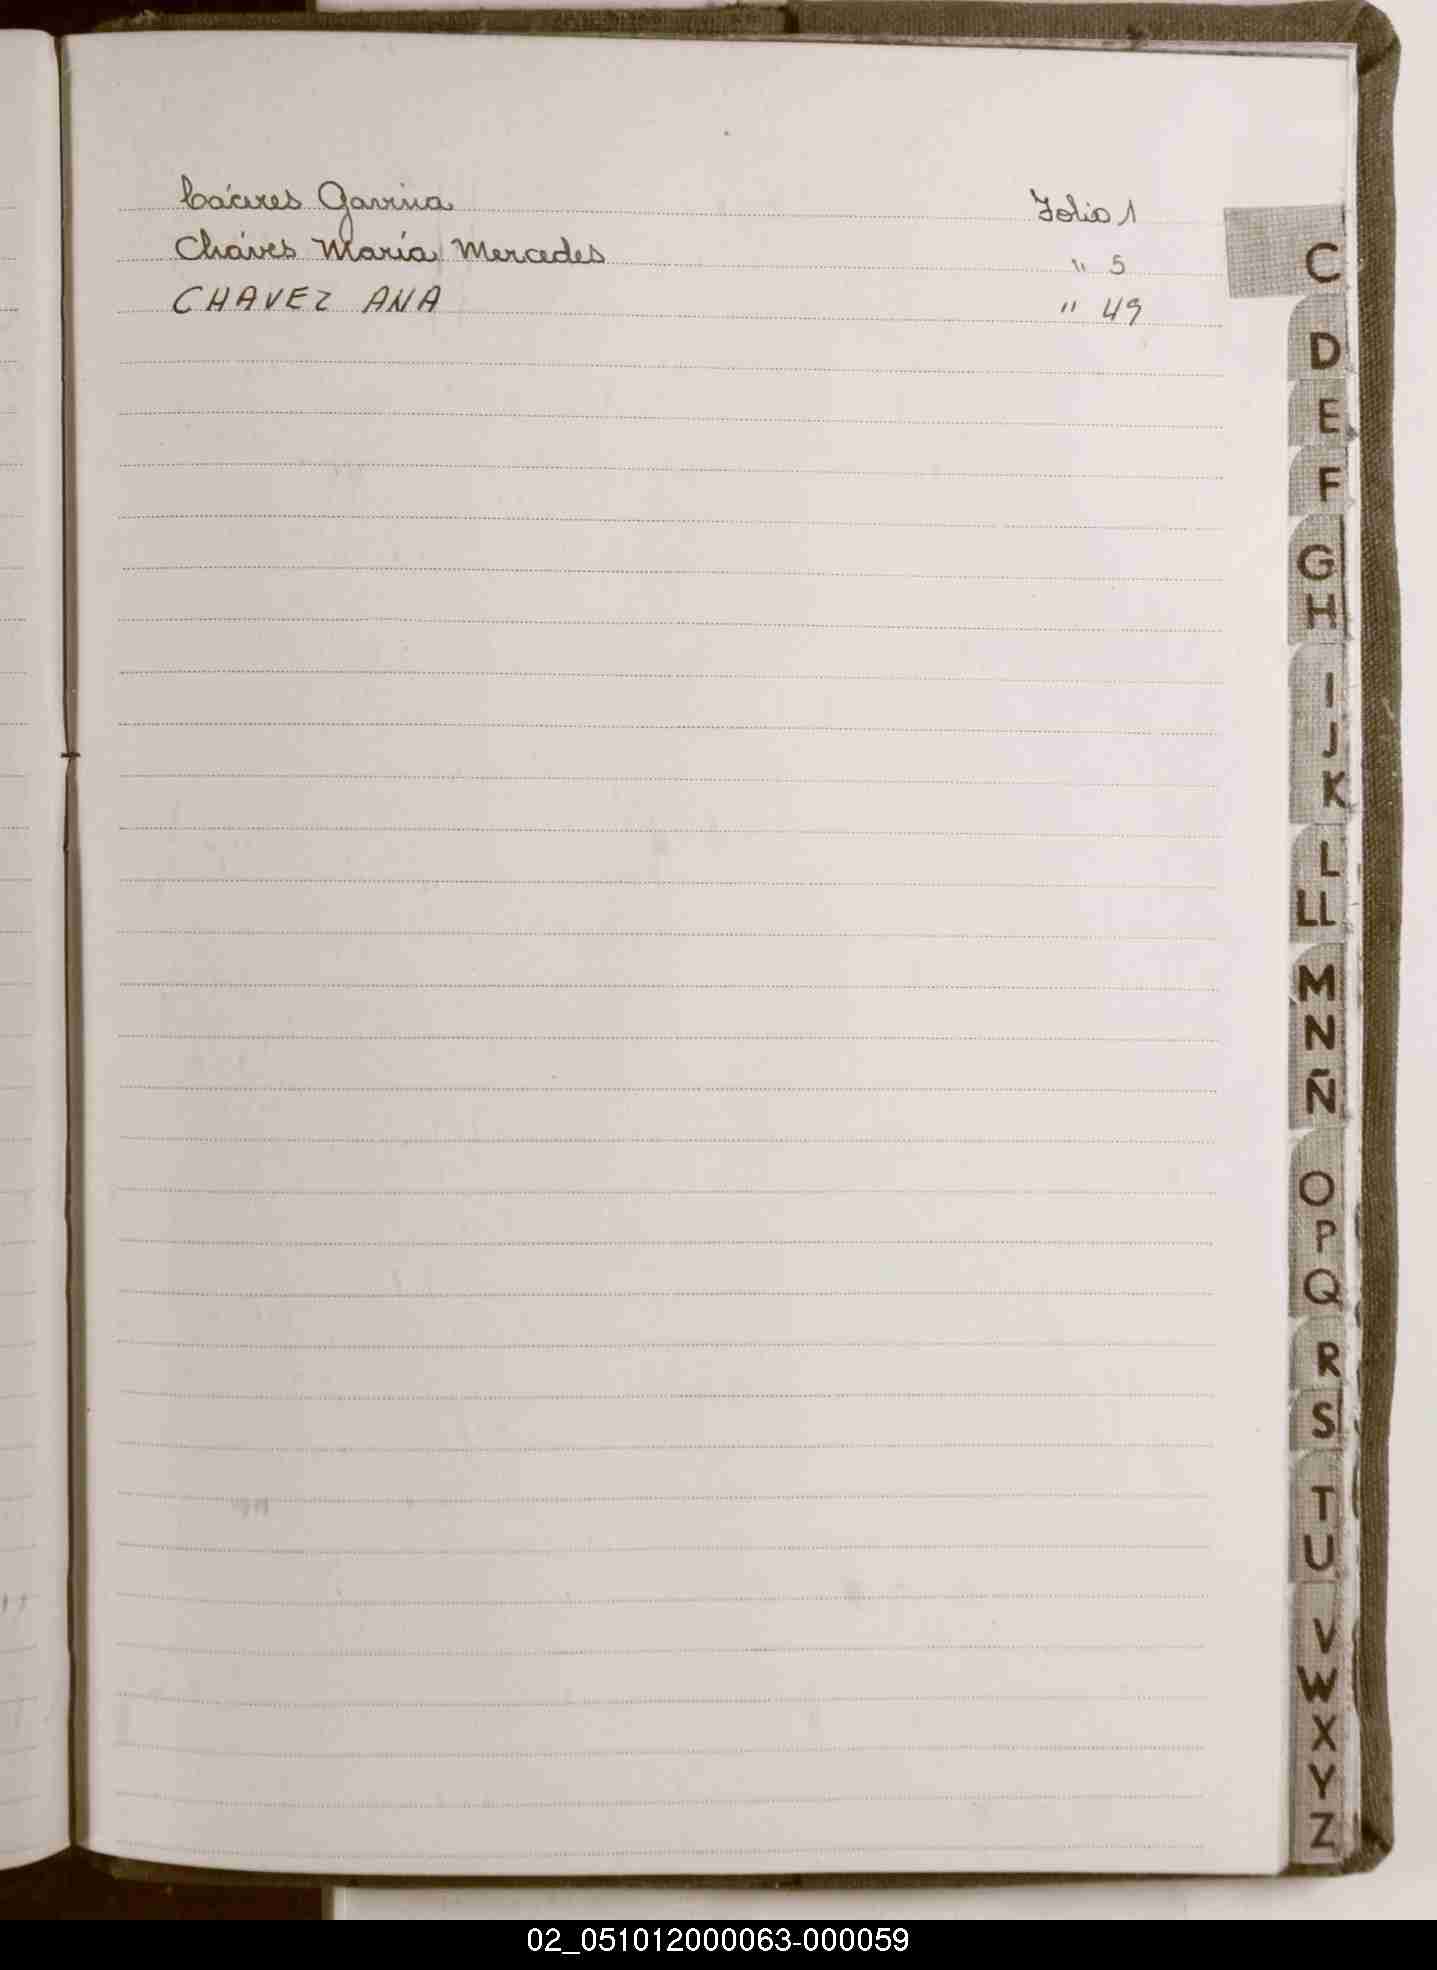 Cáceres Gavina Folio 1
Cháves María Mercedes " 5
CHAVEZ ANA " 49
C
D
E
F
G
H
I
J
K
L
LL
M
N
Ñ
O
P
Q
R
S
T
U
V
W
X
Y
Z
02_051012000063-000059